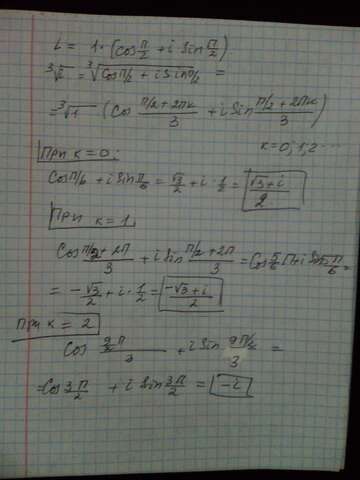 i = 1·(cos π/2 + i sin π/2)
³√i = ³√(cos π/2 + i sin π/2) =
= ³√1 (cos (π/2 + 2πк)/3 + i sin (π/2 + 2πк)/3)
к = 0; 1; 2
При к = 0:
cos π/6 + i sin π/6 = √3/2 + i · 1/2 = (√3 + i)/2
При к = 1,
cos (π/2 + 2π)/3 + i sin (π/2 + 2π)/3 = cos 5/6 π + i sin 5π/6 =
= -√3/2 + i · 1/2 = (-√3 + i)/2
при к = 2
cos (9π/2)/3 + i sin (9π/2)/3 =
= cos 3π/2 + i sin 3π/2 = -i